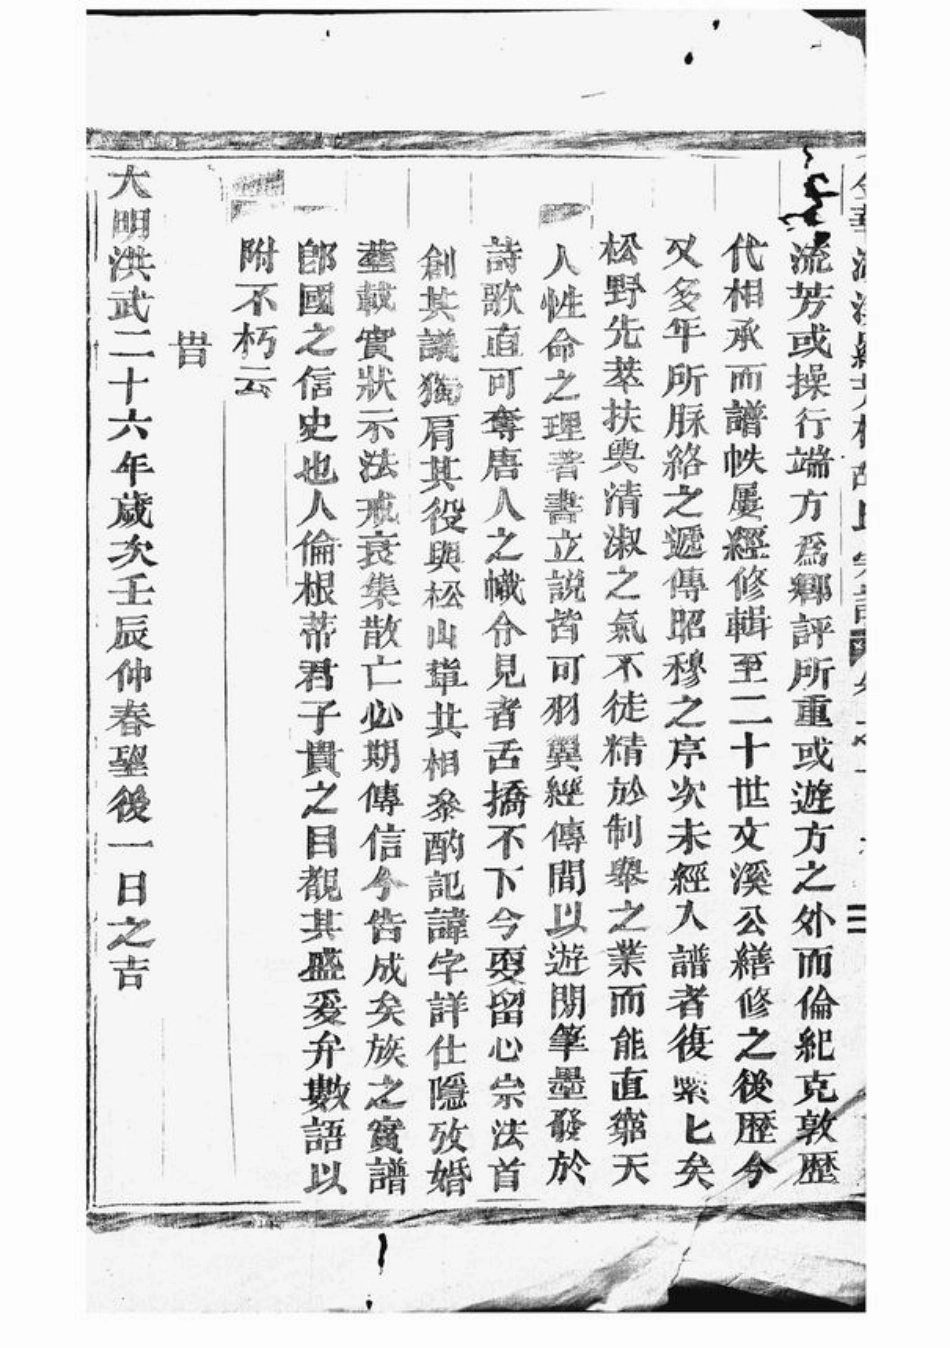 流芳或操行端方爲鄉評所重或遊方之外而倫紀克敦歷
代相承而譜帙屢經修輯至二十世文溪公繕修之後歷今
又多年所脉絡之遞傳昭穆之序次未經入譜者復纍匕矣
松野先萃扶輿清淑之氣不徒精於制舉之業而能直窮天
人性命之理著書立說皆可羽翼經傳間以遊閒筆墨發於
詩歌直可奪唐人之幟令見者舌撟不下今更留心宗法首
創其議獨肩其役與松山輩共相叅酌記諱字詳仕隱攷婚
塟載實狀示法戒裒集散亡必期傳信今告成矣族之實譜
卽國之信史也人倫根蒂君子貴之目觀其盛爰弁數語以
附不朽云
旹
大明洪武二十六年歲次壬辰仲春朢後一日之吉